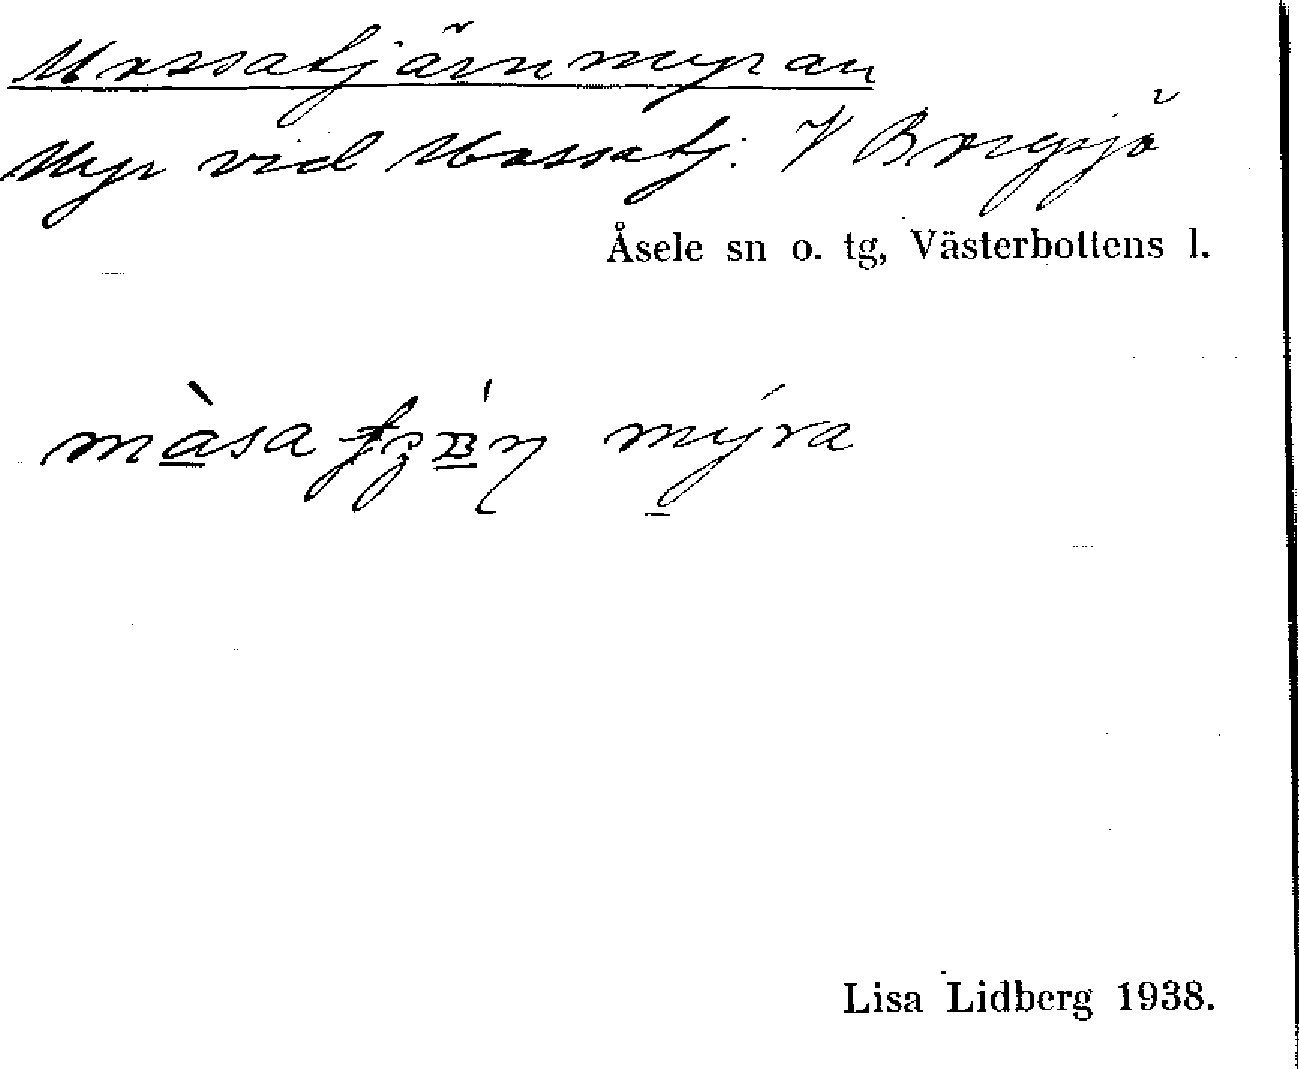 Mossatjärnmyran
Myr vid Mossatj. V Borgsjö
Åsele sn o. tg, Västerbottens l.
màsa mýra
Lisa Lidberg 1938.